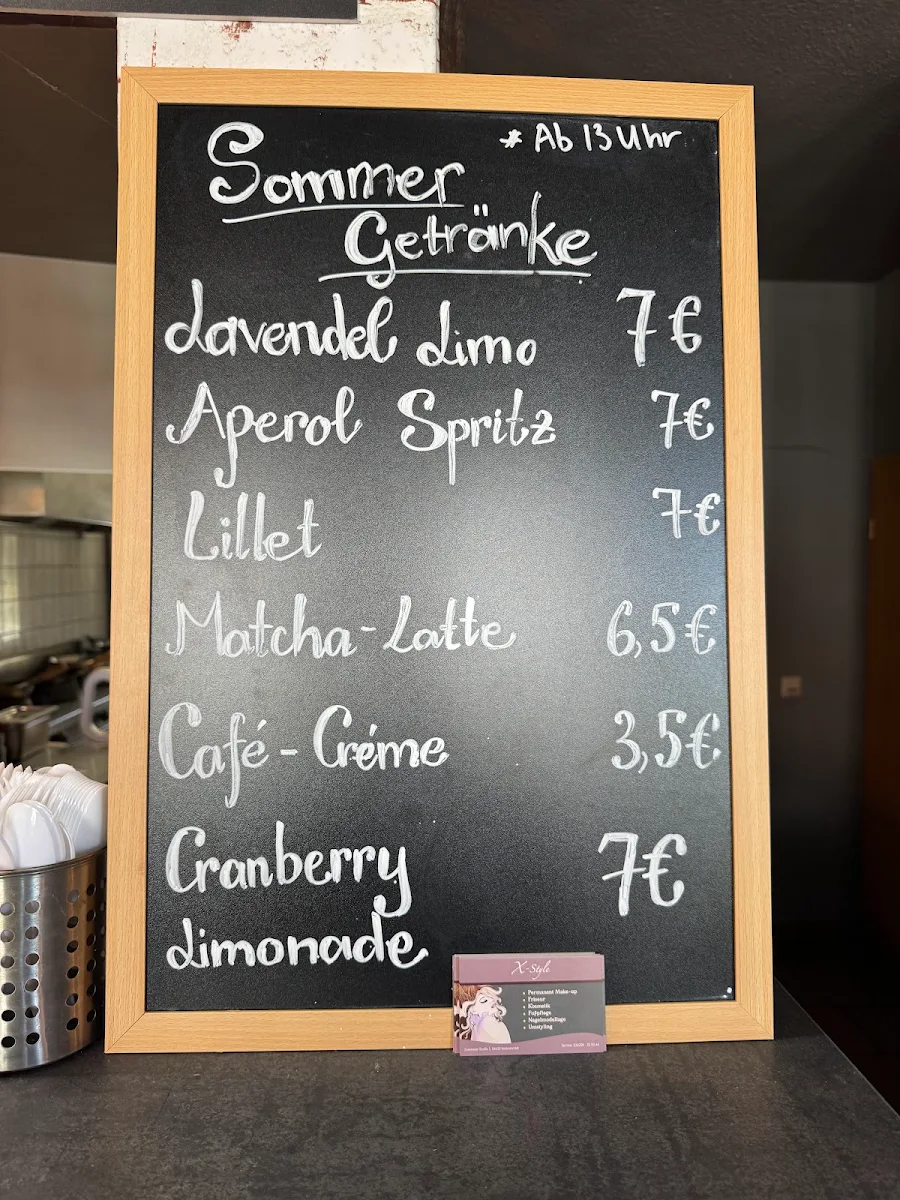 * Ab 13 Uhr
Sommer
Getränke
Lavendel Limo 7€
Aperol Spritz 7€
Lillet 7€
Matcha-Latte 6,5€
Café-Créme 3,5€
Cranberry 7€
Limonade
X-Style
Permanent Make-up
Friseur
Kosmetik
Fußpflege
Nagelmodellage
Umstyling